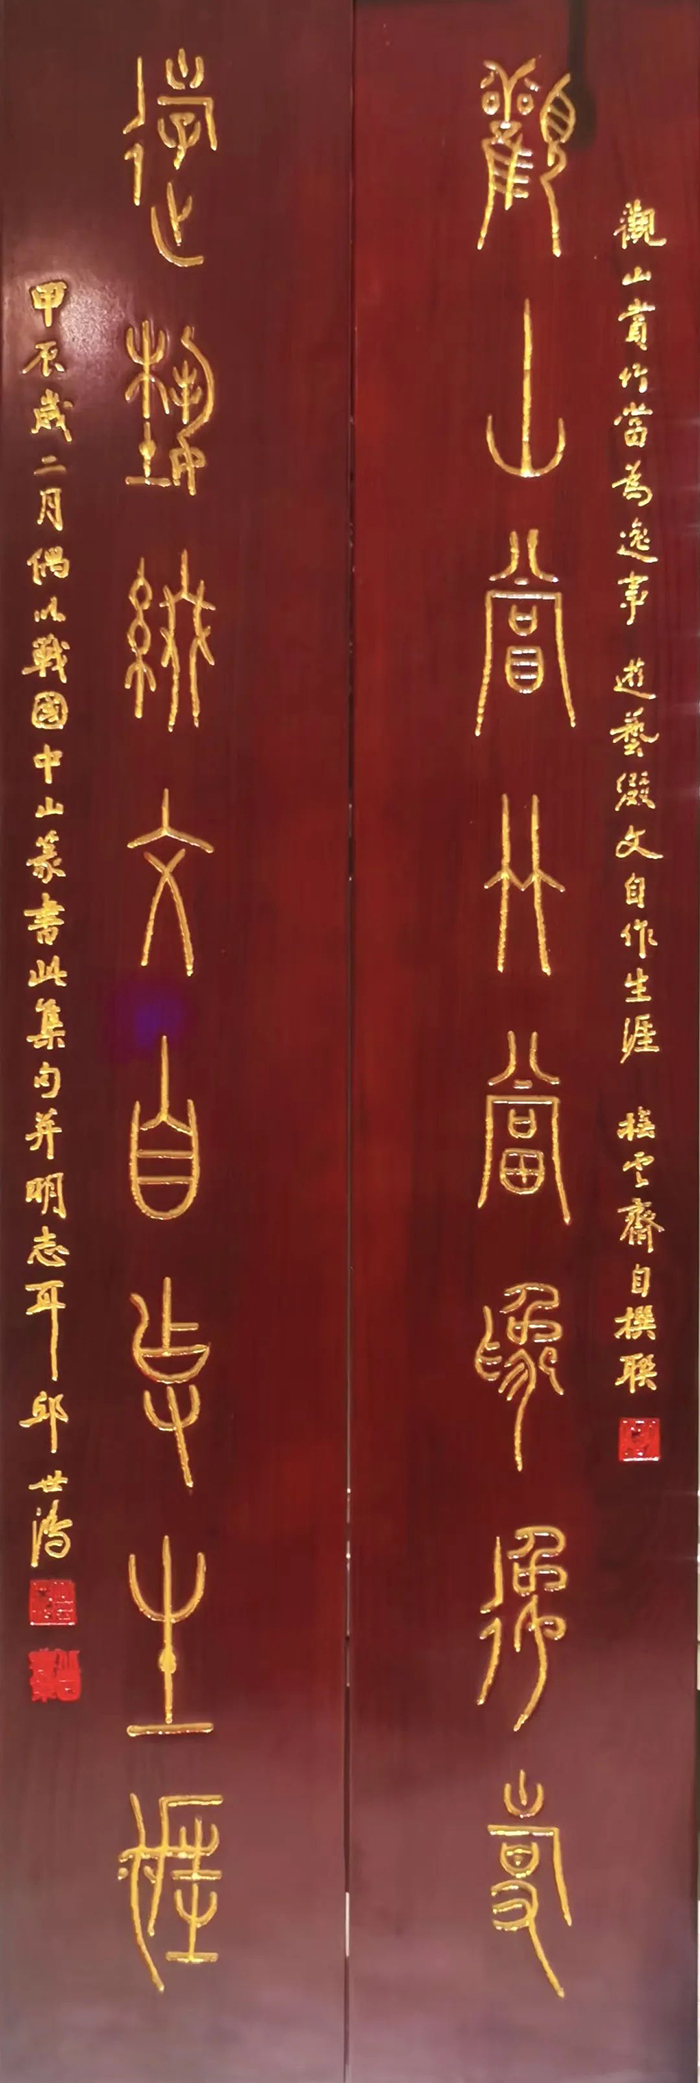 觀山賞竹當為逸事 遊藝綴文自作生涯 橅雲齋自撰聯
觀山賞竹當為逸事
遊藝綴文自作生涯
甲辰歲二月偶以戰國中山篆書此集句并明志耳 邱世鴻